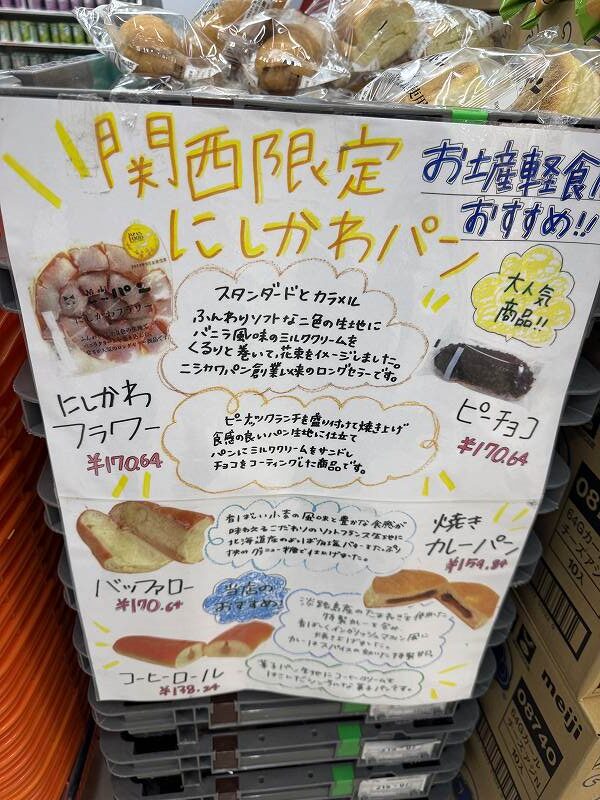 関西限定
にしかわパン
お土産軽食に
おすすめ!!
大人気
商品!!
スタンダードとカラメル
ふんわりソフトな二色の生地に
バニラ風味のミルククリームを
くるりと巻いて、花束をイメージしました。
ニシカワパン創業以来のロングセラーです。
にしかわ
フラワー
¥170.64
ピーチョコ
¥170.64
ピーナッツクランチを盛り付けて焼き上げ
食感の良いパン生地に仕立て
パンにミルククリームをサンドし
チョコをコーティングした商品です。
香ばしい小麦の風味と豊かな食感が
味わえるこだわりのソフトフランス生地に
北海道産の
バッファロー
¥170.64
焼き
カレーパン
¥159.84
当店の
おすすめ!
淡路島産のたまねぎを使用した
特製カレーを
コーヒーロール
¥138.24
菓子パン生地にコーヒークリームを
菓子パンです。
meiji
08740
10入